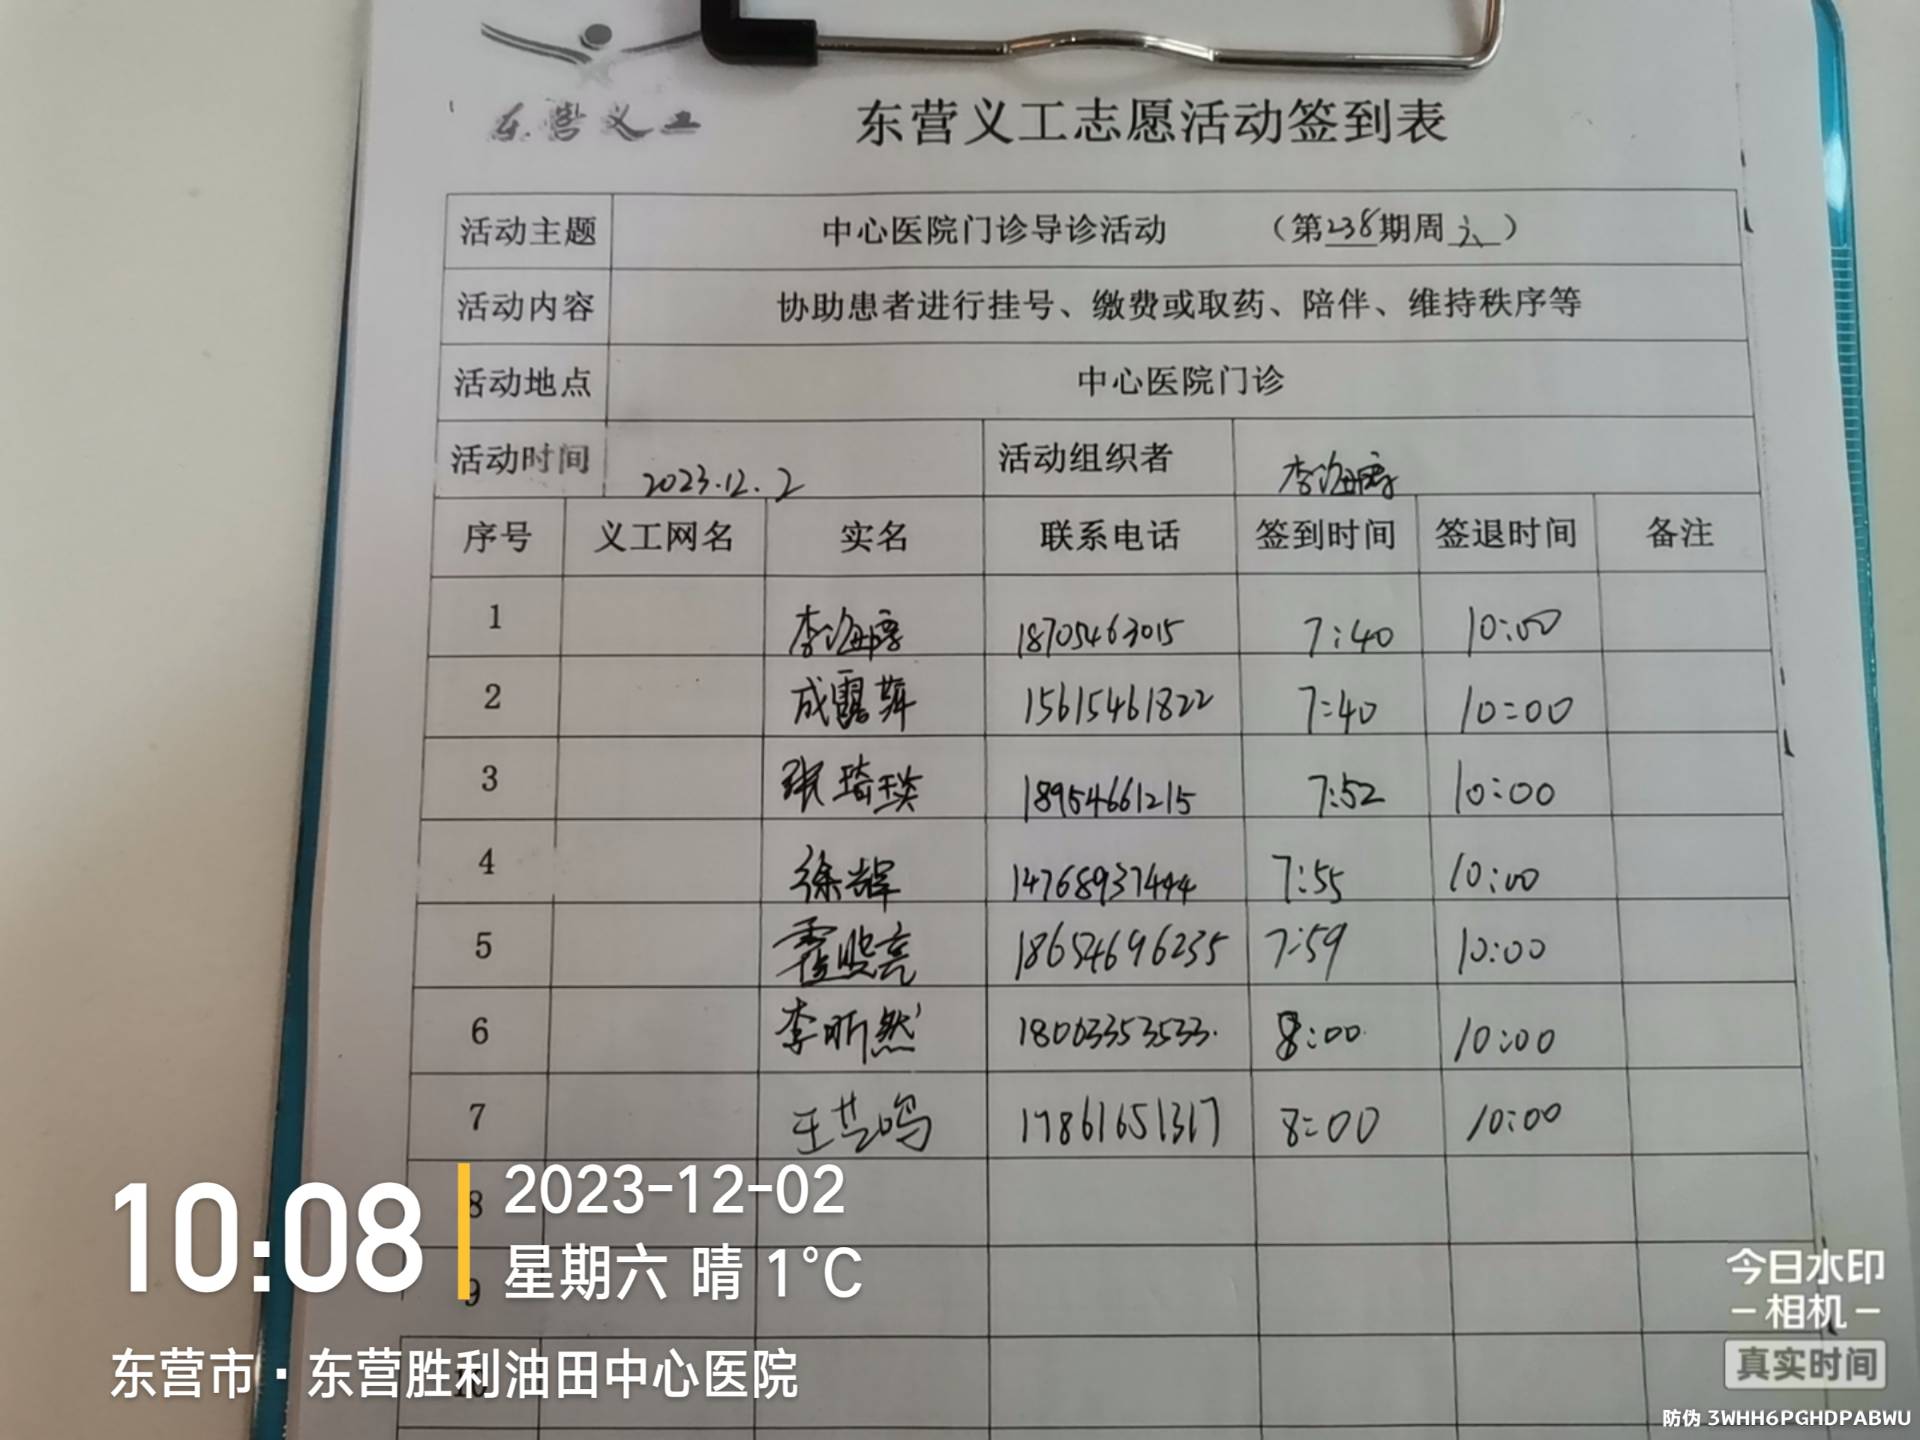 东营义工
东营义工志愿活动签到表
活动主题 中心医院门诊导诊活动 （第238期周六）
活动内容 协助患者进行挂号、缴费或取药、陪伴、维持秩序等
活动地点 中心医院门诊
活动时间 2023.12.2 活动组织者 李海
序号 义工网名 实名 联系电话 签到时间 签退时间 备注
1 李海 18705463015 7:40 10:00
2 成露萍 15615461822 7:40 10:00
3 张琦琰 18954661215 7:52 10:00
4 徐辉 14768937444 7:55 10:00
5 霍熙亮 18654696235 7:59 10:00
6 李昕然 18063353533. 8:00 10:00
7 王艺鸣 17861651317 8:00 10:00
8
9
10
10:08
2023-12-02
星期六 晴 1°C
东营市·东营胜利油田中心医院
今日水印
相机
真实时间
防伪 3WHH6PGHDPABWU